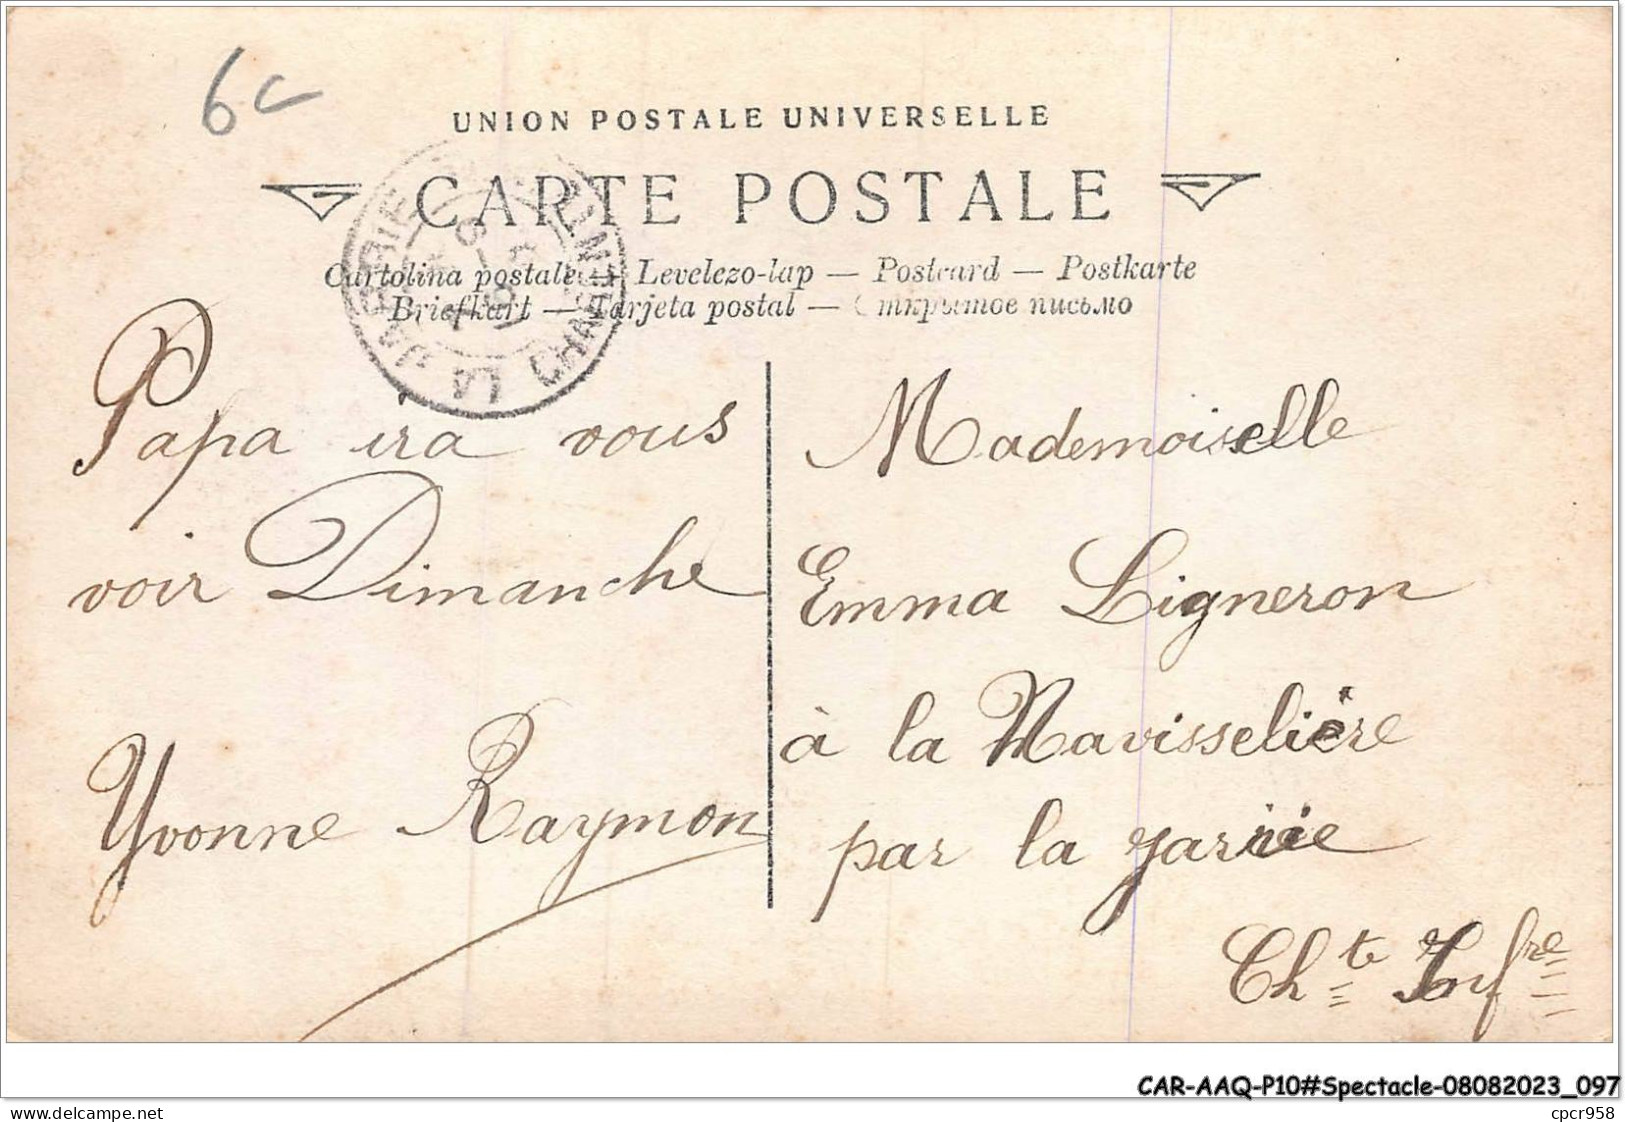 6c
UNION POSTALE UNIVERSELLE
CARTE POSTALE
Cartolina postale — Levelezo-lap — Postcard — Postkarte
Briefkart — Tarjeta postal — Открытое письмо
LA JARRIE
Papa ira vous
voir Dimanche
Yvonne Raymon
Mademoiselle
Emma Ligneron
à la Navisselière
par la jarrie
Ch.te Infre
CAR-AAQ-P10#Spectacle-08082023_097
cpcr958